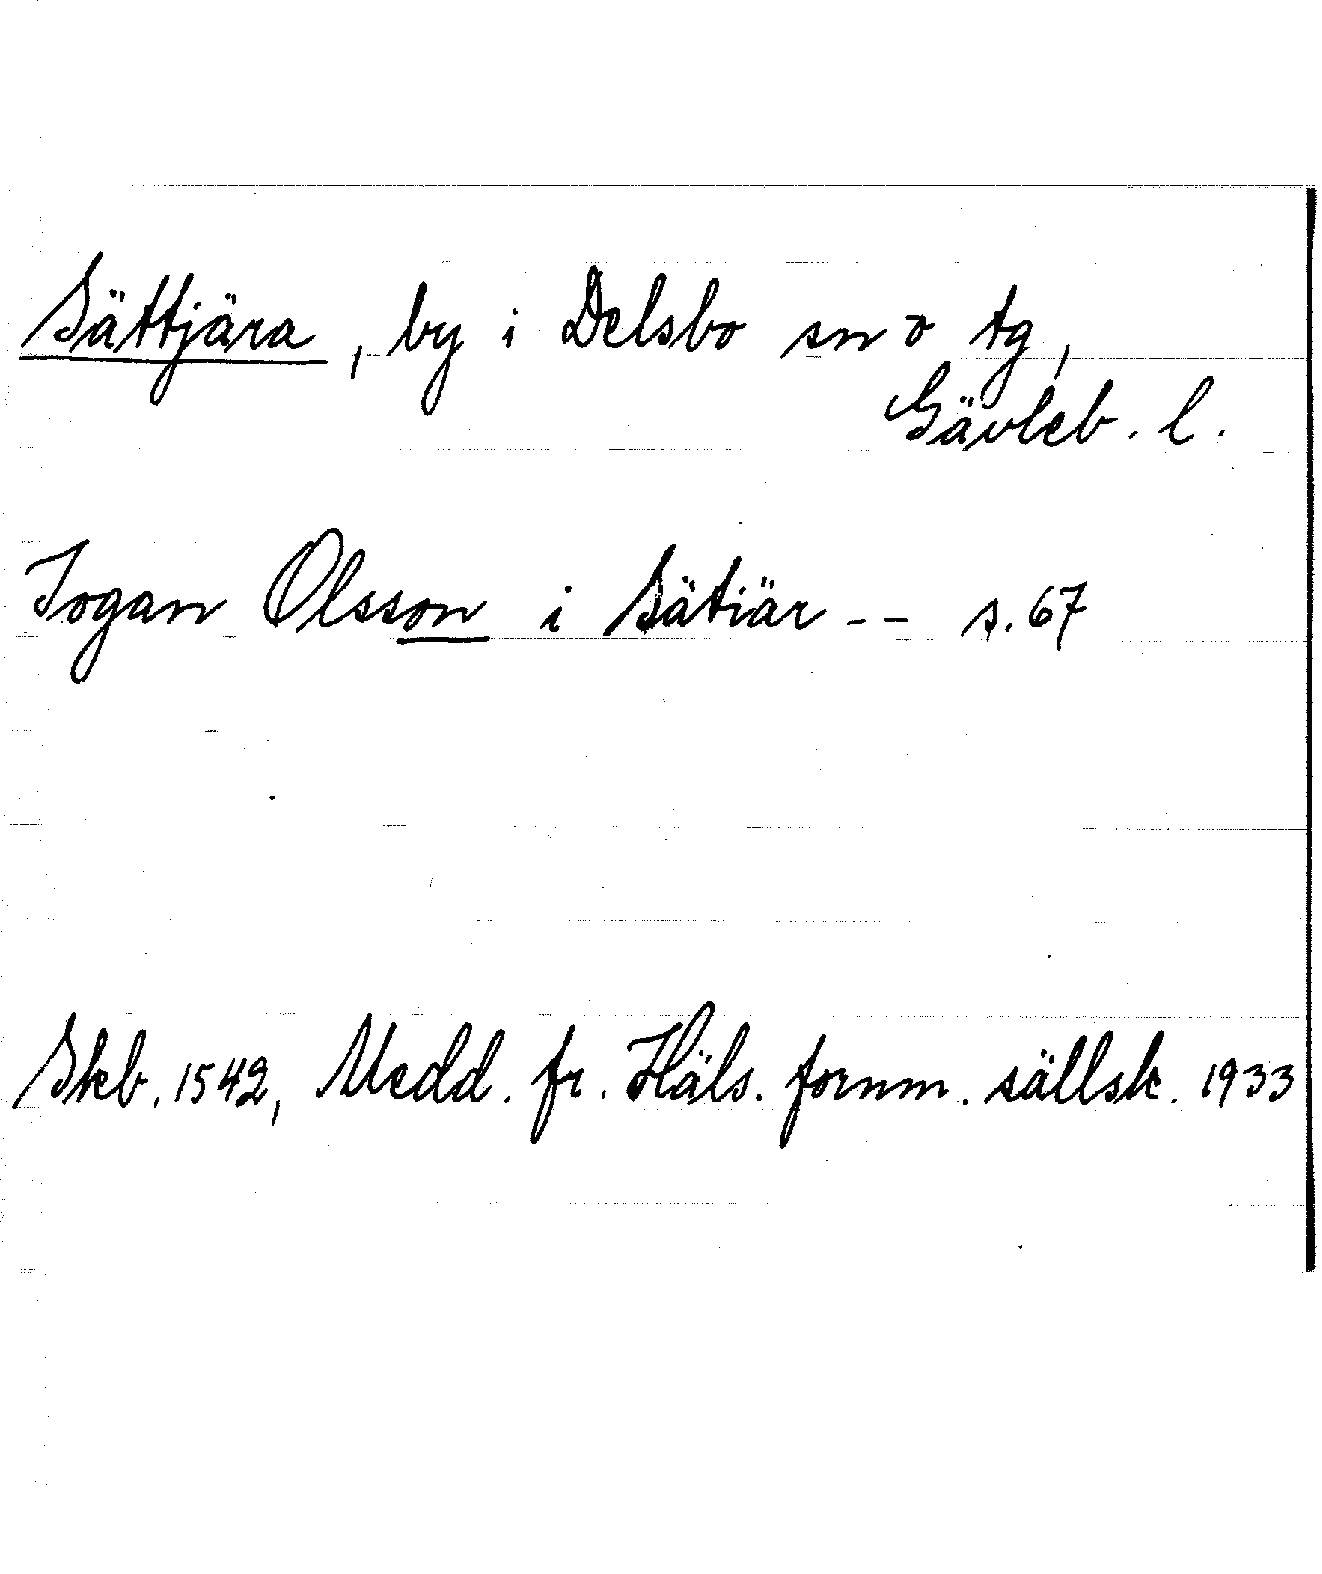 Sättjära, by i Delsbo sn o tg,
Gävleb. l.
Jogan Olsson i Sätiär -- s. 67
Skb. 1542, Medd. fr. Häls. fornm. sällsk. 1933